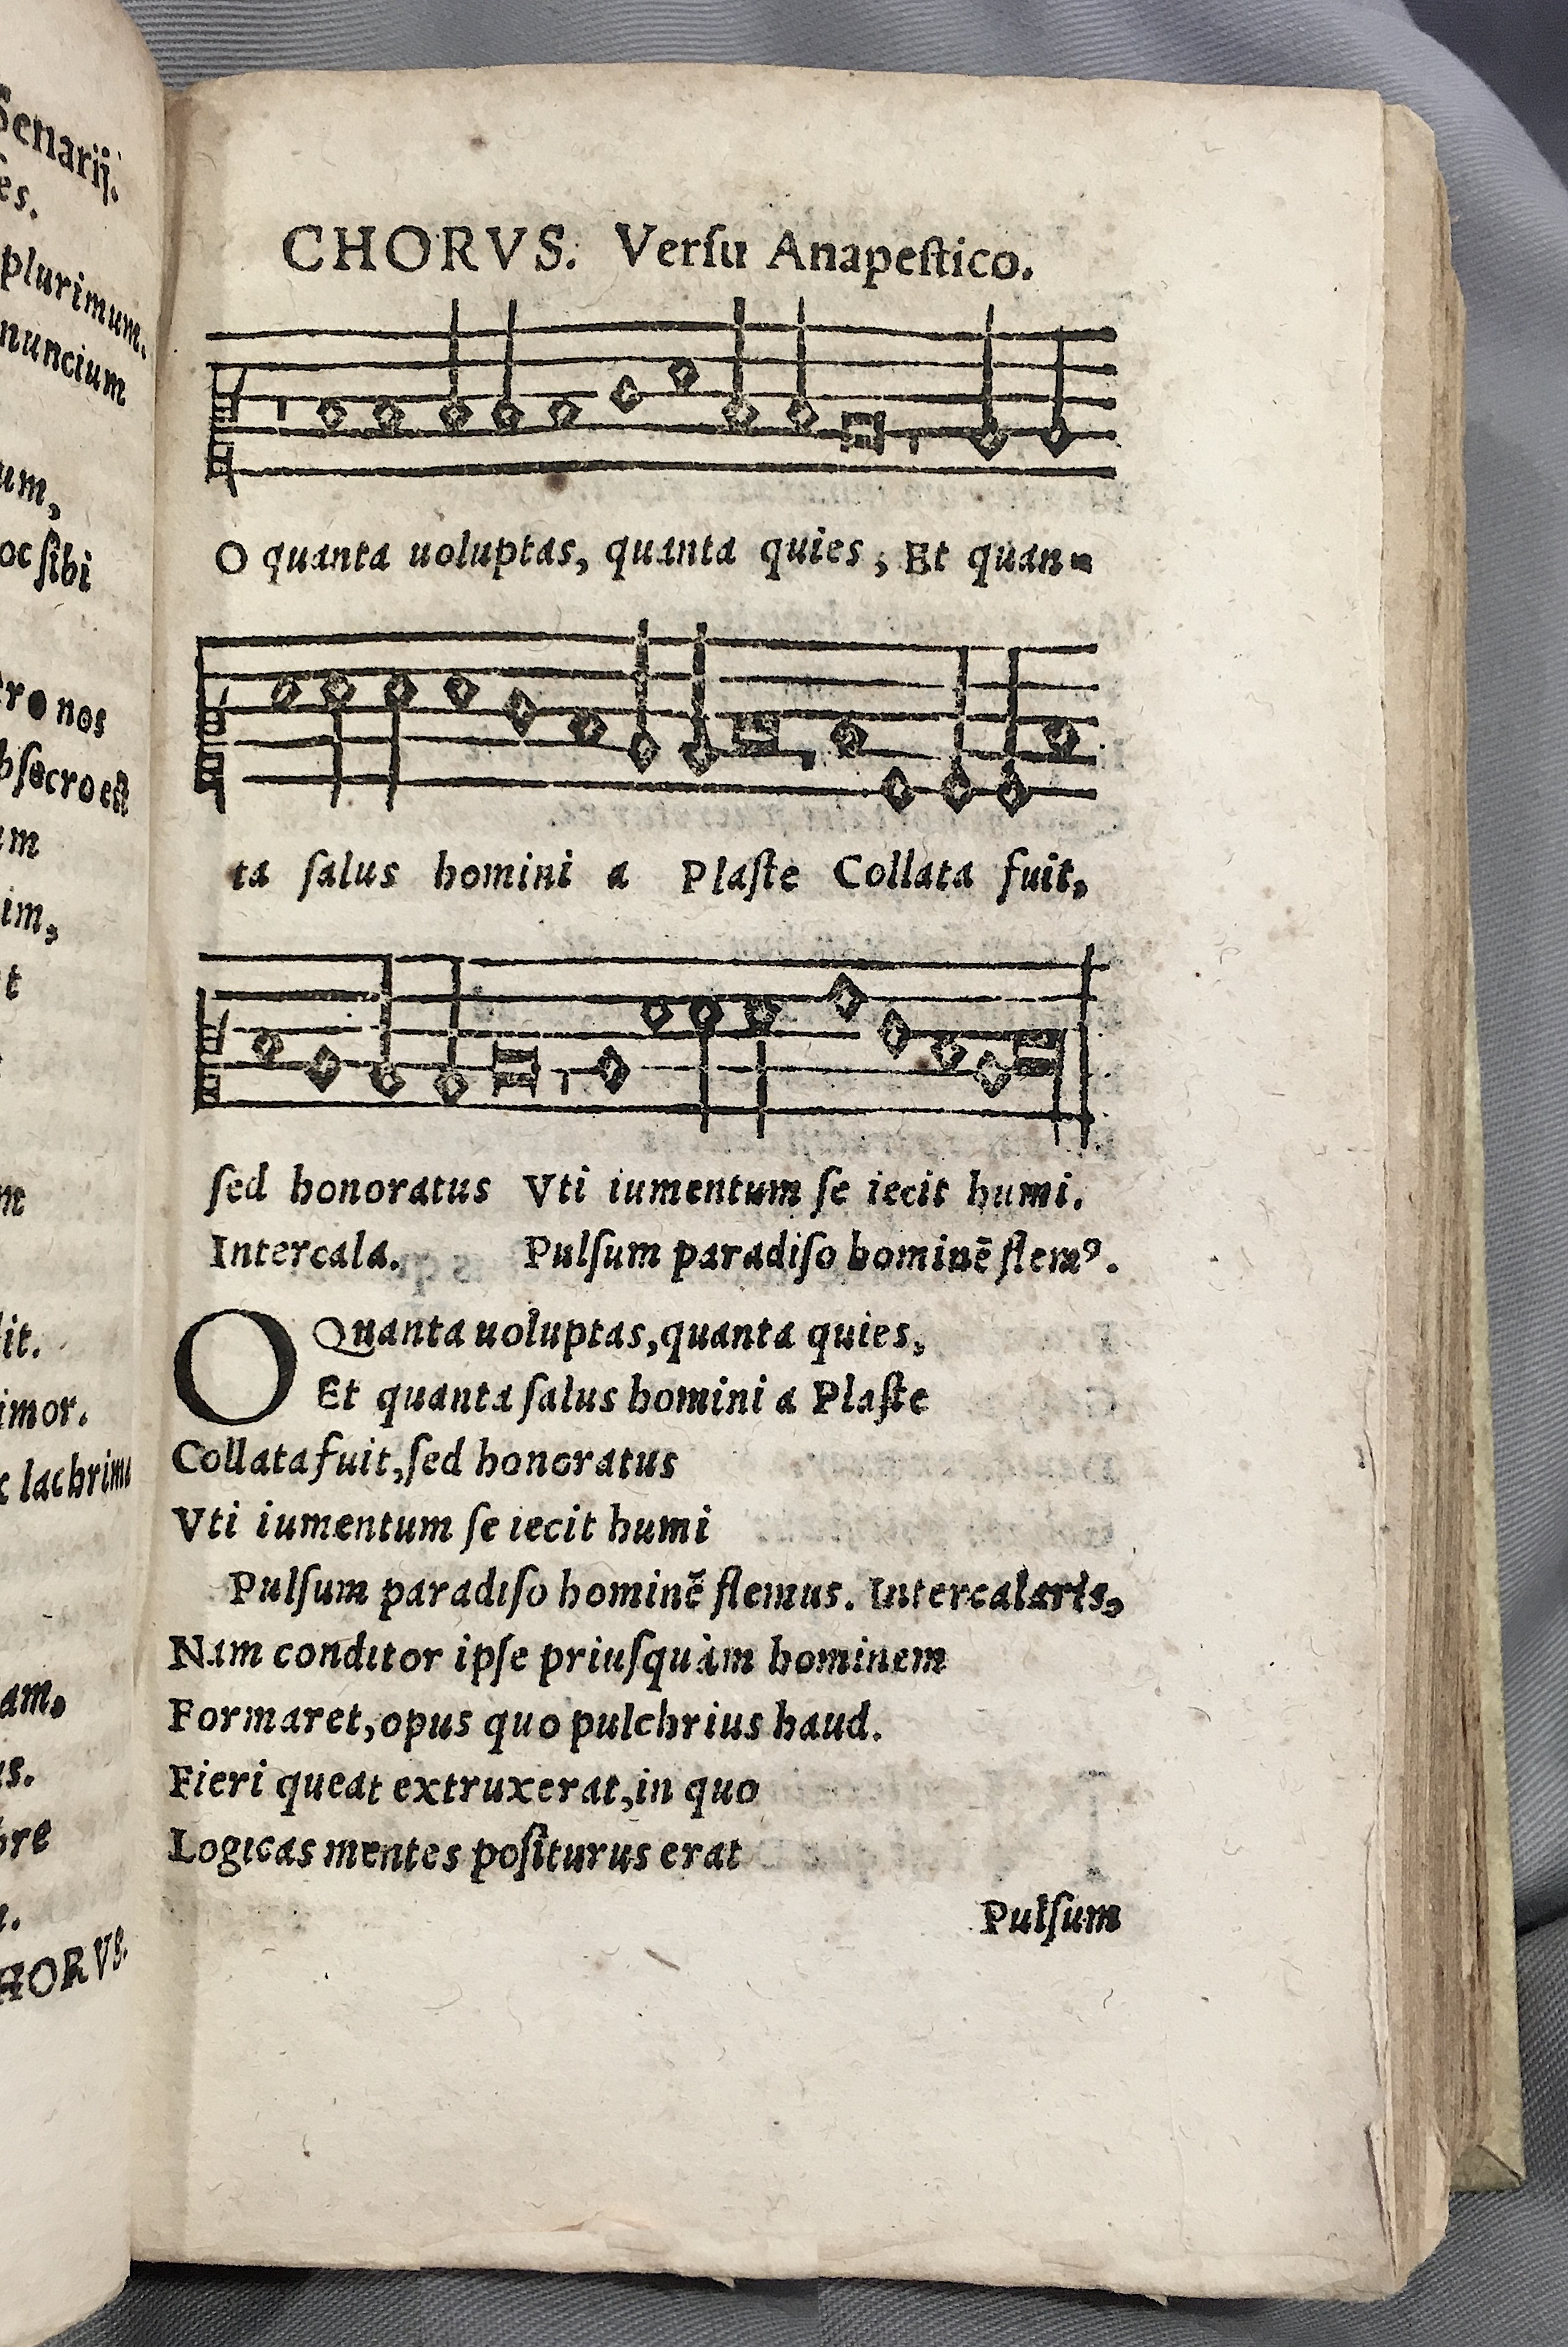 Senarij.
es.
plurimum.
nuncium
um,
oc ſibi
tro nos
obſecro eſt
um
im,
t
m
dit.
imor.
c lachrima
am,
us.
bre
HORVS.
CHORVS. Verſu Anapeſtico.
O quanta uoluptas, quanta quies, Et quan-
ta ſalus homini a Plaſte Collata fuit,
ſed honoratus Vti iumentum ſe iecit humi.
Intercala. Pulſum paradiſo hominē flemꝰ.
O Quanta uoluptas, quanta quies,
Et quanta ſalus homini a Plaſte
Collata fuit, ſed honoratus
Vti iumentum ſe iecit humi
Pulſum paradiſo hominē flemus. Intercalaris,
Nam conditor ipſe priuſquàm hominem
Formaret, opus quo pulchrius haud.
Fieri queat extruxerat, in quo
Logicas mentes poſiturus erat
Pulſum